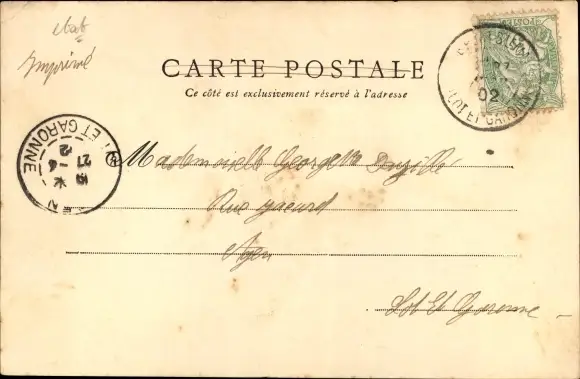 Imprimé
CARTE POSTALE
Ce côté est exclusivement réservé à l'adresse
02
LOT ET GARONNE
ET GARONNE
27
Mademoiselle Georgette
Rue
Agen
Lot Et Garonne